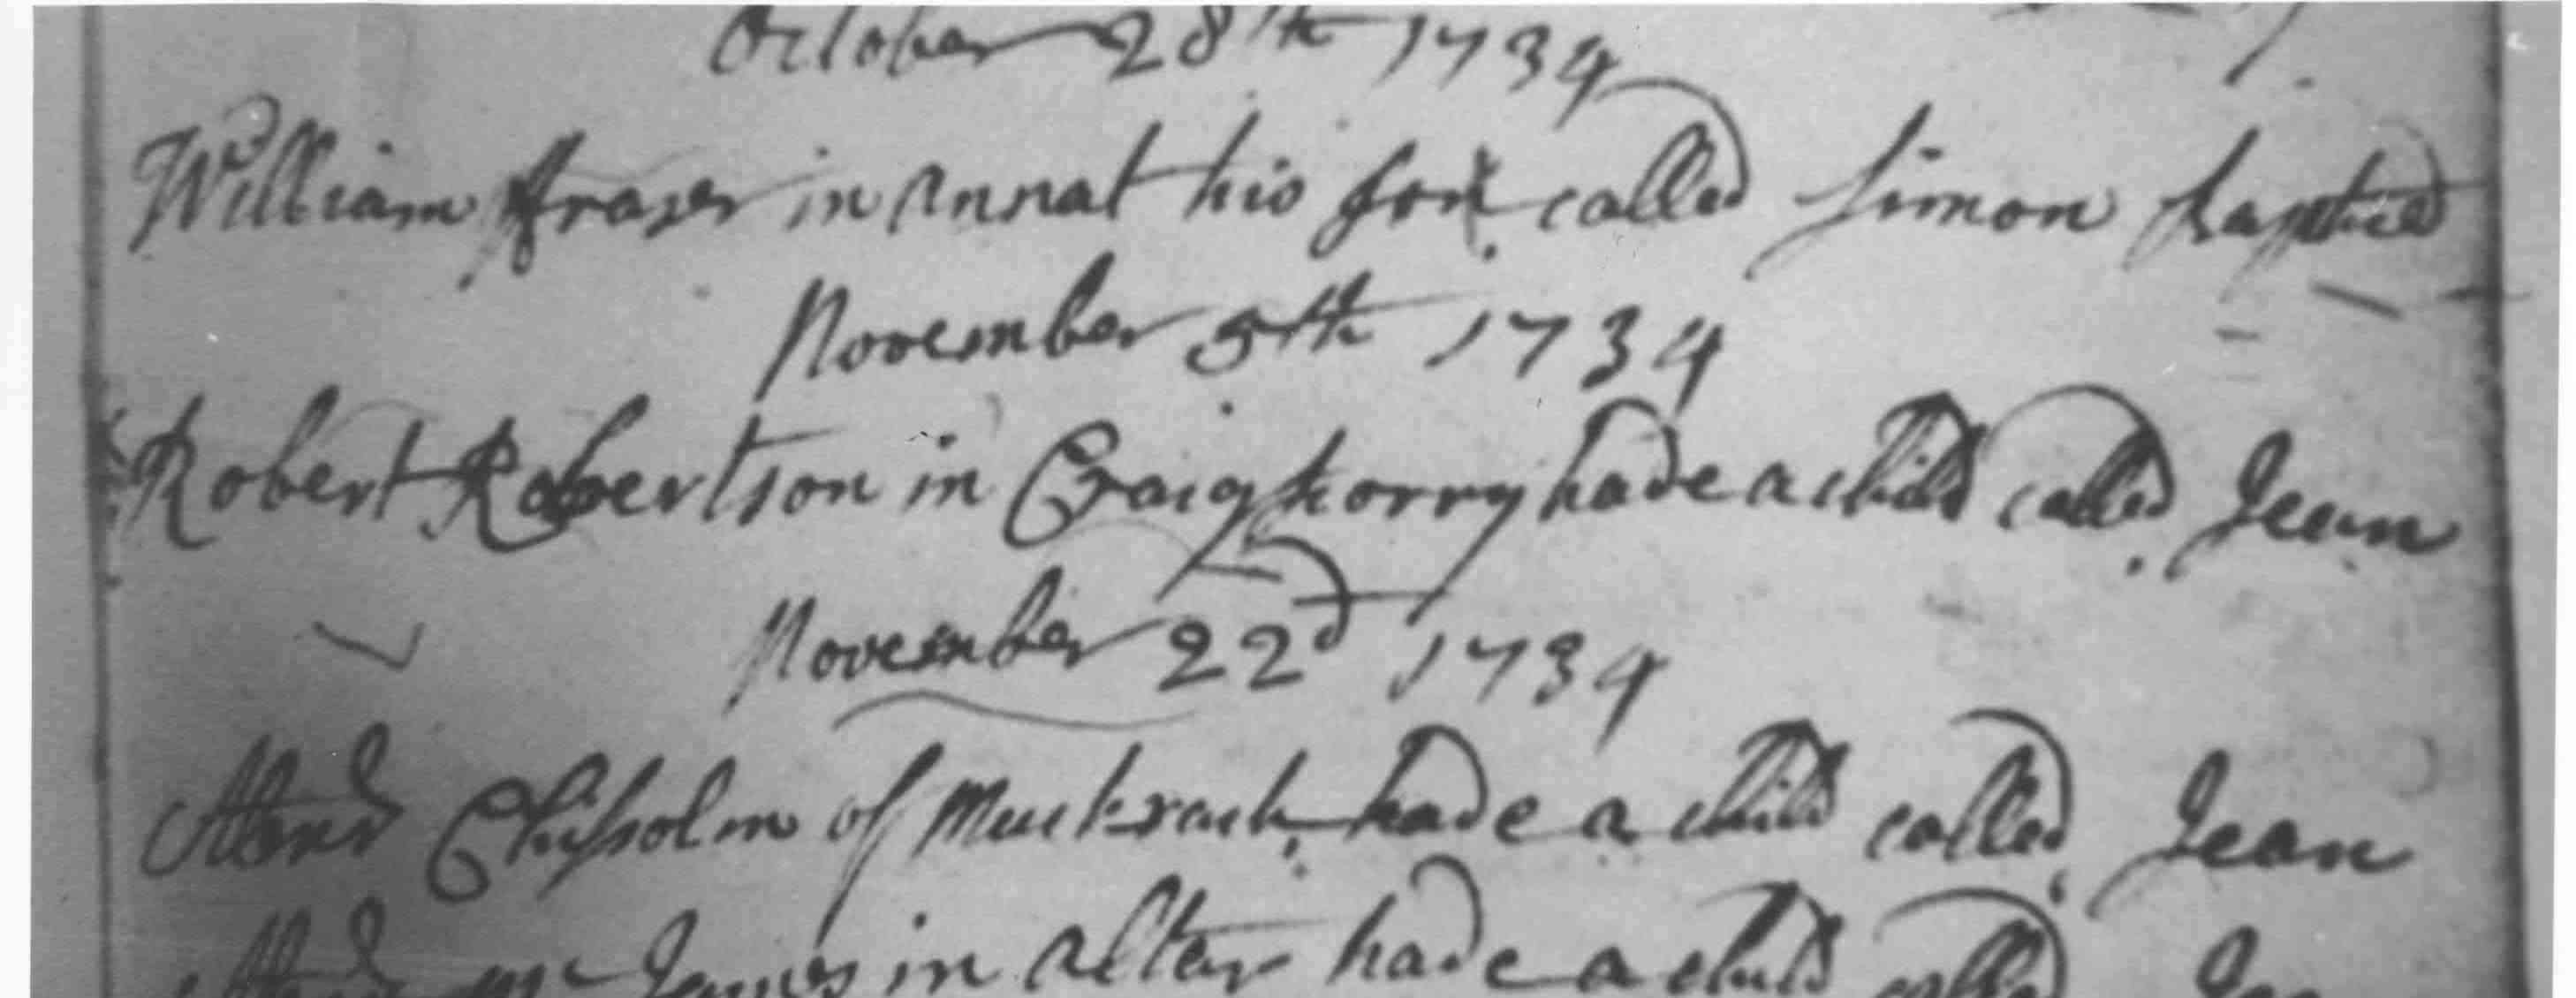 October 28th 1734
William ffraser in Annat his son called Simon baptied
November 5th 1734
Robert Robertson in Craigskorry hade a child called Jean
November 22d 1734
Alexr Chisholm of Muckrach hade a child called Jean
in Alter hade a child called